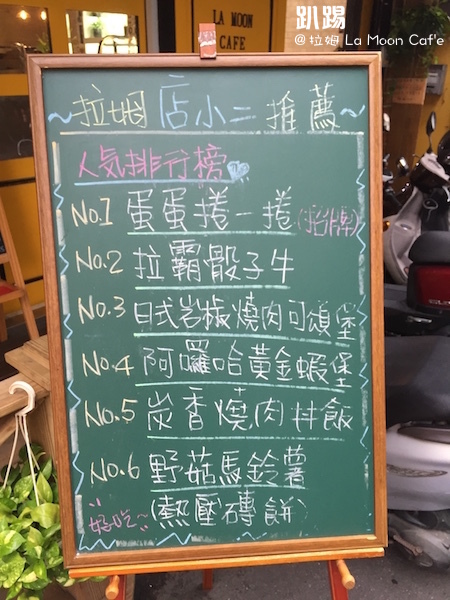 趴踢
@拉姆 La Moon Caf'e
LA MOON
CAFE
~拉姆店小二推薦~
人気排行榜
No.1 蛋蛋捲一捲(招牌)
No.2 拉霸骰子牛
No.3 日式岩椒燒肉可頌堡
No.4 阿囉哈黃金蝦堡
No.5 炭香燒肉丼飯
No.6 野菇馬鈴薯
好吃~ (熱壓磚餅)